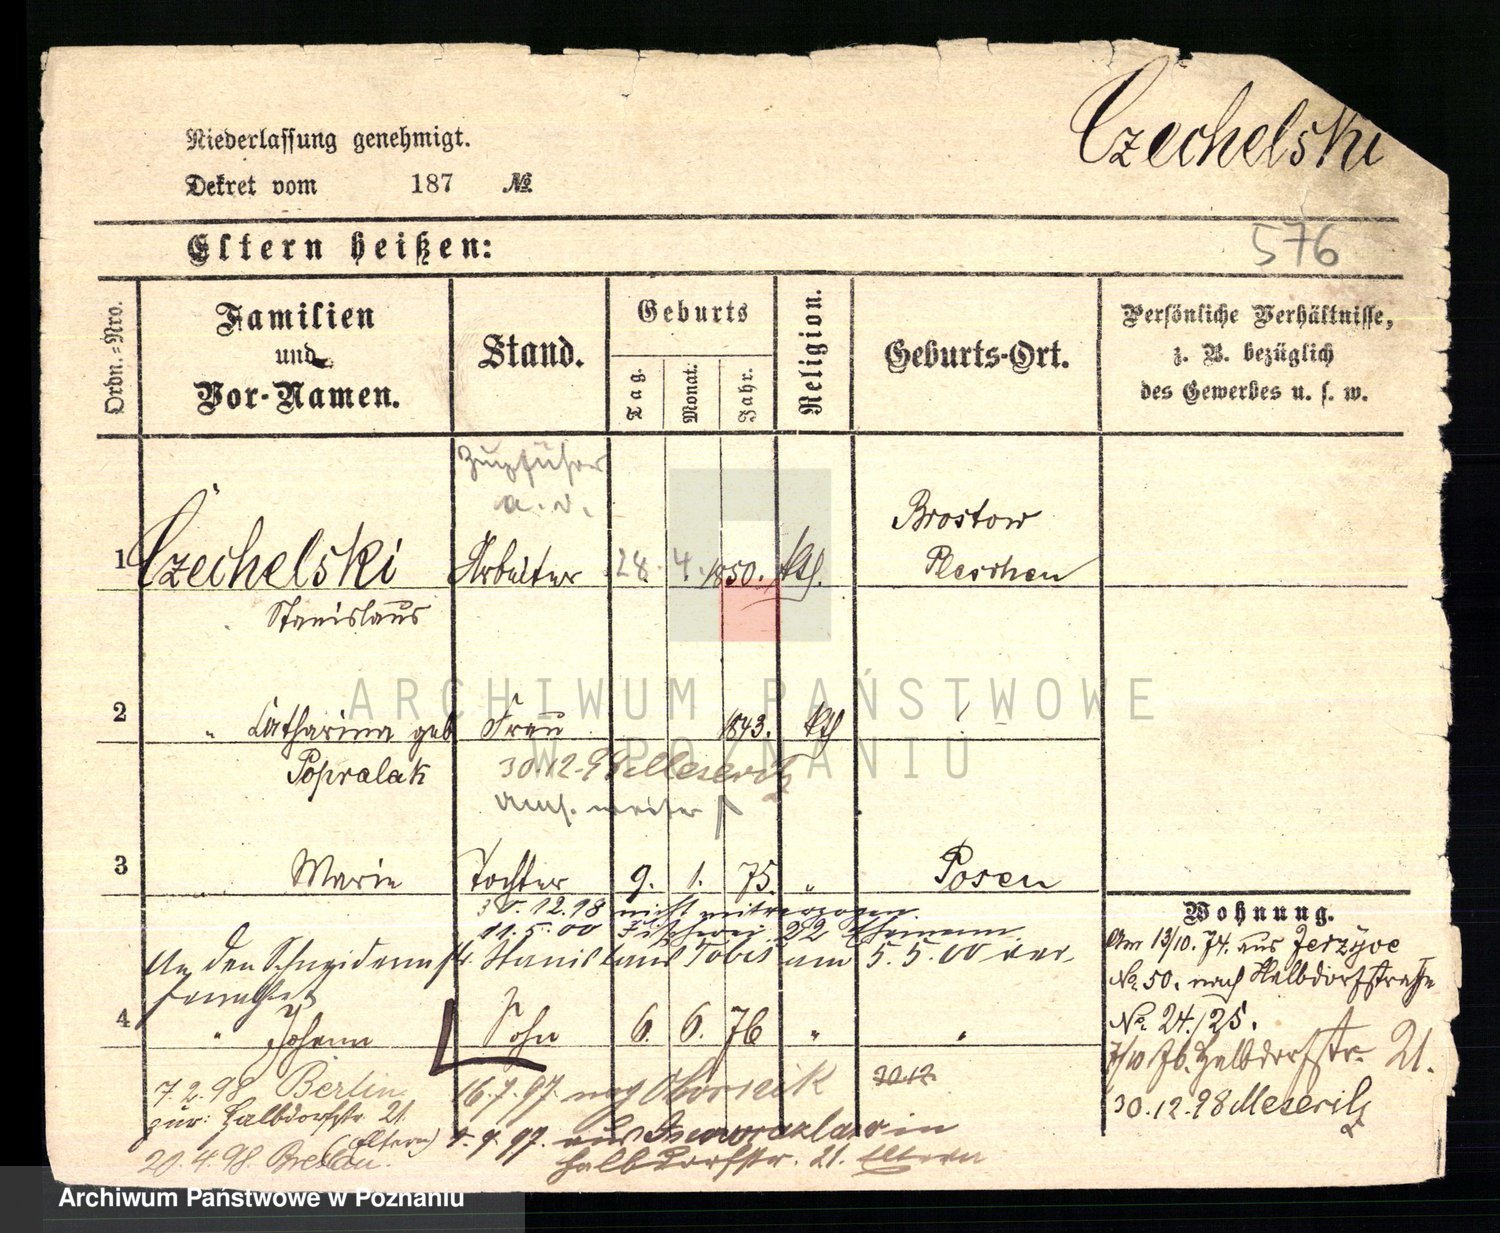 Czechelski
Niederlassung genehmigt.
Dekret vom 187 №
Eltern heißen:
576
Ordn.=Nro.
Familien
und
Vor-Namen.
Stand.
Geburts
Tag.
Monat.
Jahr.
Religion.
Geburts-Ort.
Persönliche Verhältnisse,
z. B. bezüglich
des Gewerbes u. s. w.
Zugführer
a. D.
1 Czechelski Arbeiter 28. 4. 1850. kth. Brostow
Pleschen
Stanislaus
2 " Catharina geb Frau 1843. kth
Popralak
30.12.98 Meseritz
3 " Marie Tochter 9. 1. 75. " Posen
30.12.98 nicht mitverzogen.
11.5.00 Fischerei 22 Ehemann
An den Schneiderm Stanislaus Tobis am 5.5.00 ver
4 " Johann Sohn 6. 6. 76 " "
7.2.98 Berlin
zur: Halbdorfstr 21
(Eltern)
20.4.98. Breslau.
16.7.97. nach
30.12
9.97. aus in
Halbdorfstr. 21. Eltern
Wohnung.
Am 13/10. 74. aus Jerzyce
№ 50. nach Halbdorfstraße
№ 24./25.
7/10 76. Halbdorfstr. 21.
30.12.98 Meseritz
ARCHIWUM PAŃSTWOWE
W POZNANIU
Archiwum Państwowe w Poznaniu